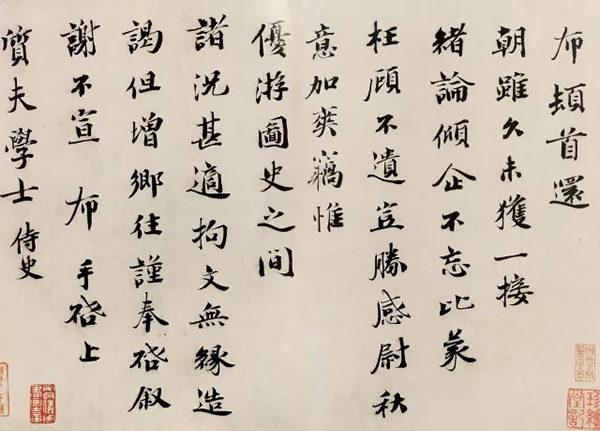 布頓首還
朝雖久未獲一接
緒論傾企不忘比蒙
枉顧不遺豈勝感尉秋
意加爽竊惟
優游圖史之間
諸況甚適拘文無緣造
謁但增鄉往謹奉啓叙
謝不宣 布手啓上
質夫學士 侍史